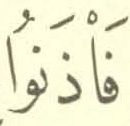 فَأْذَنُوا